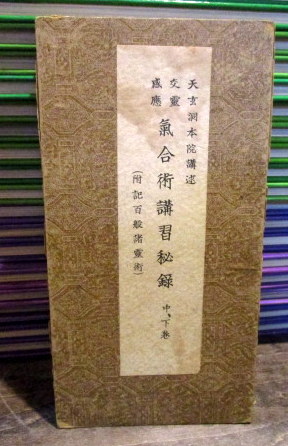 天玄洞本院講述
交靈
感應
氣合術講習秘錄
中、下卷
（附記百般諸靈術）